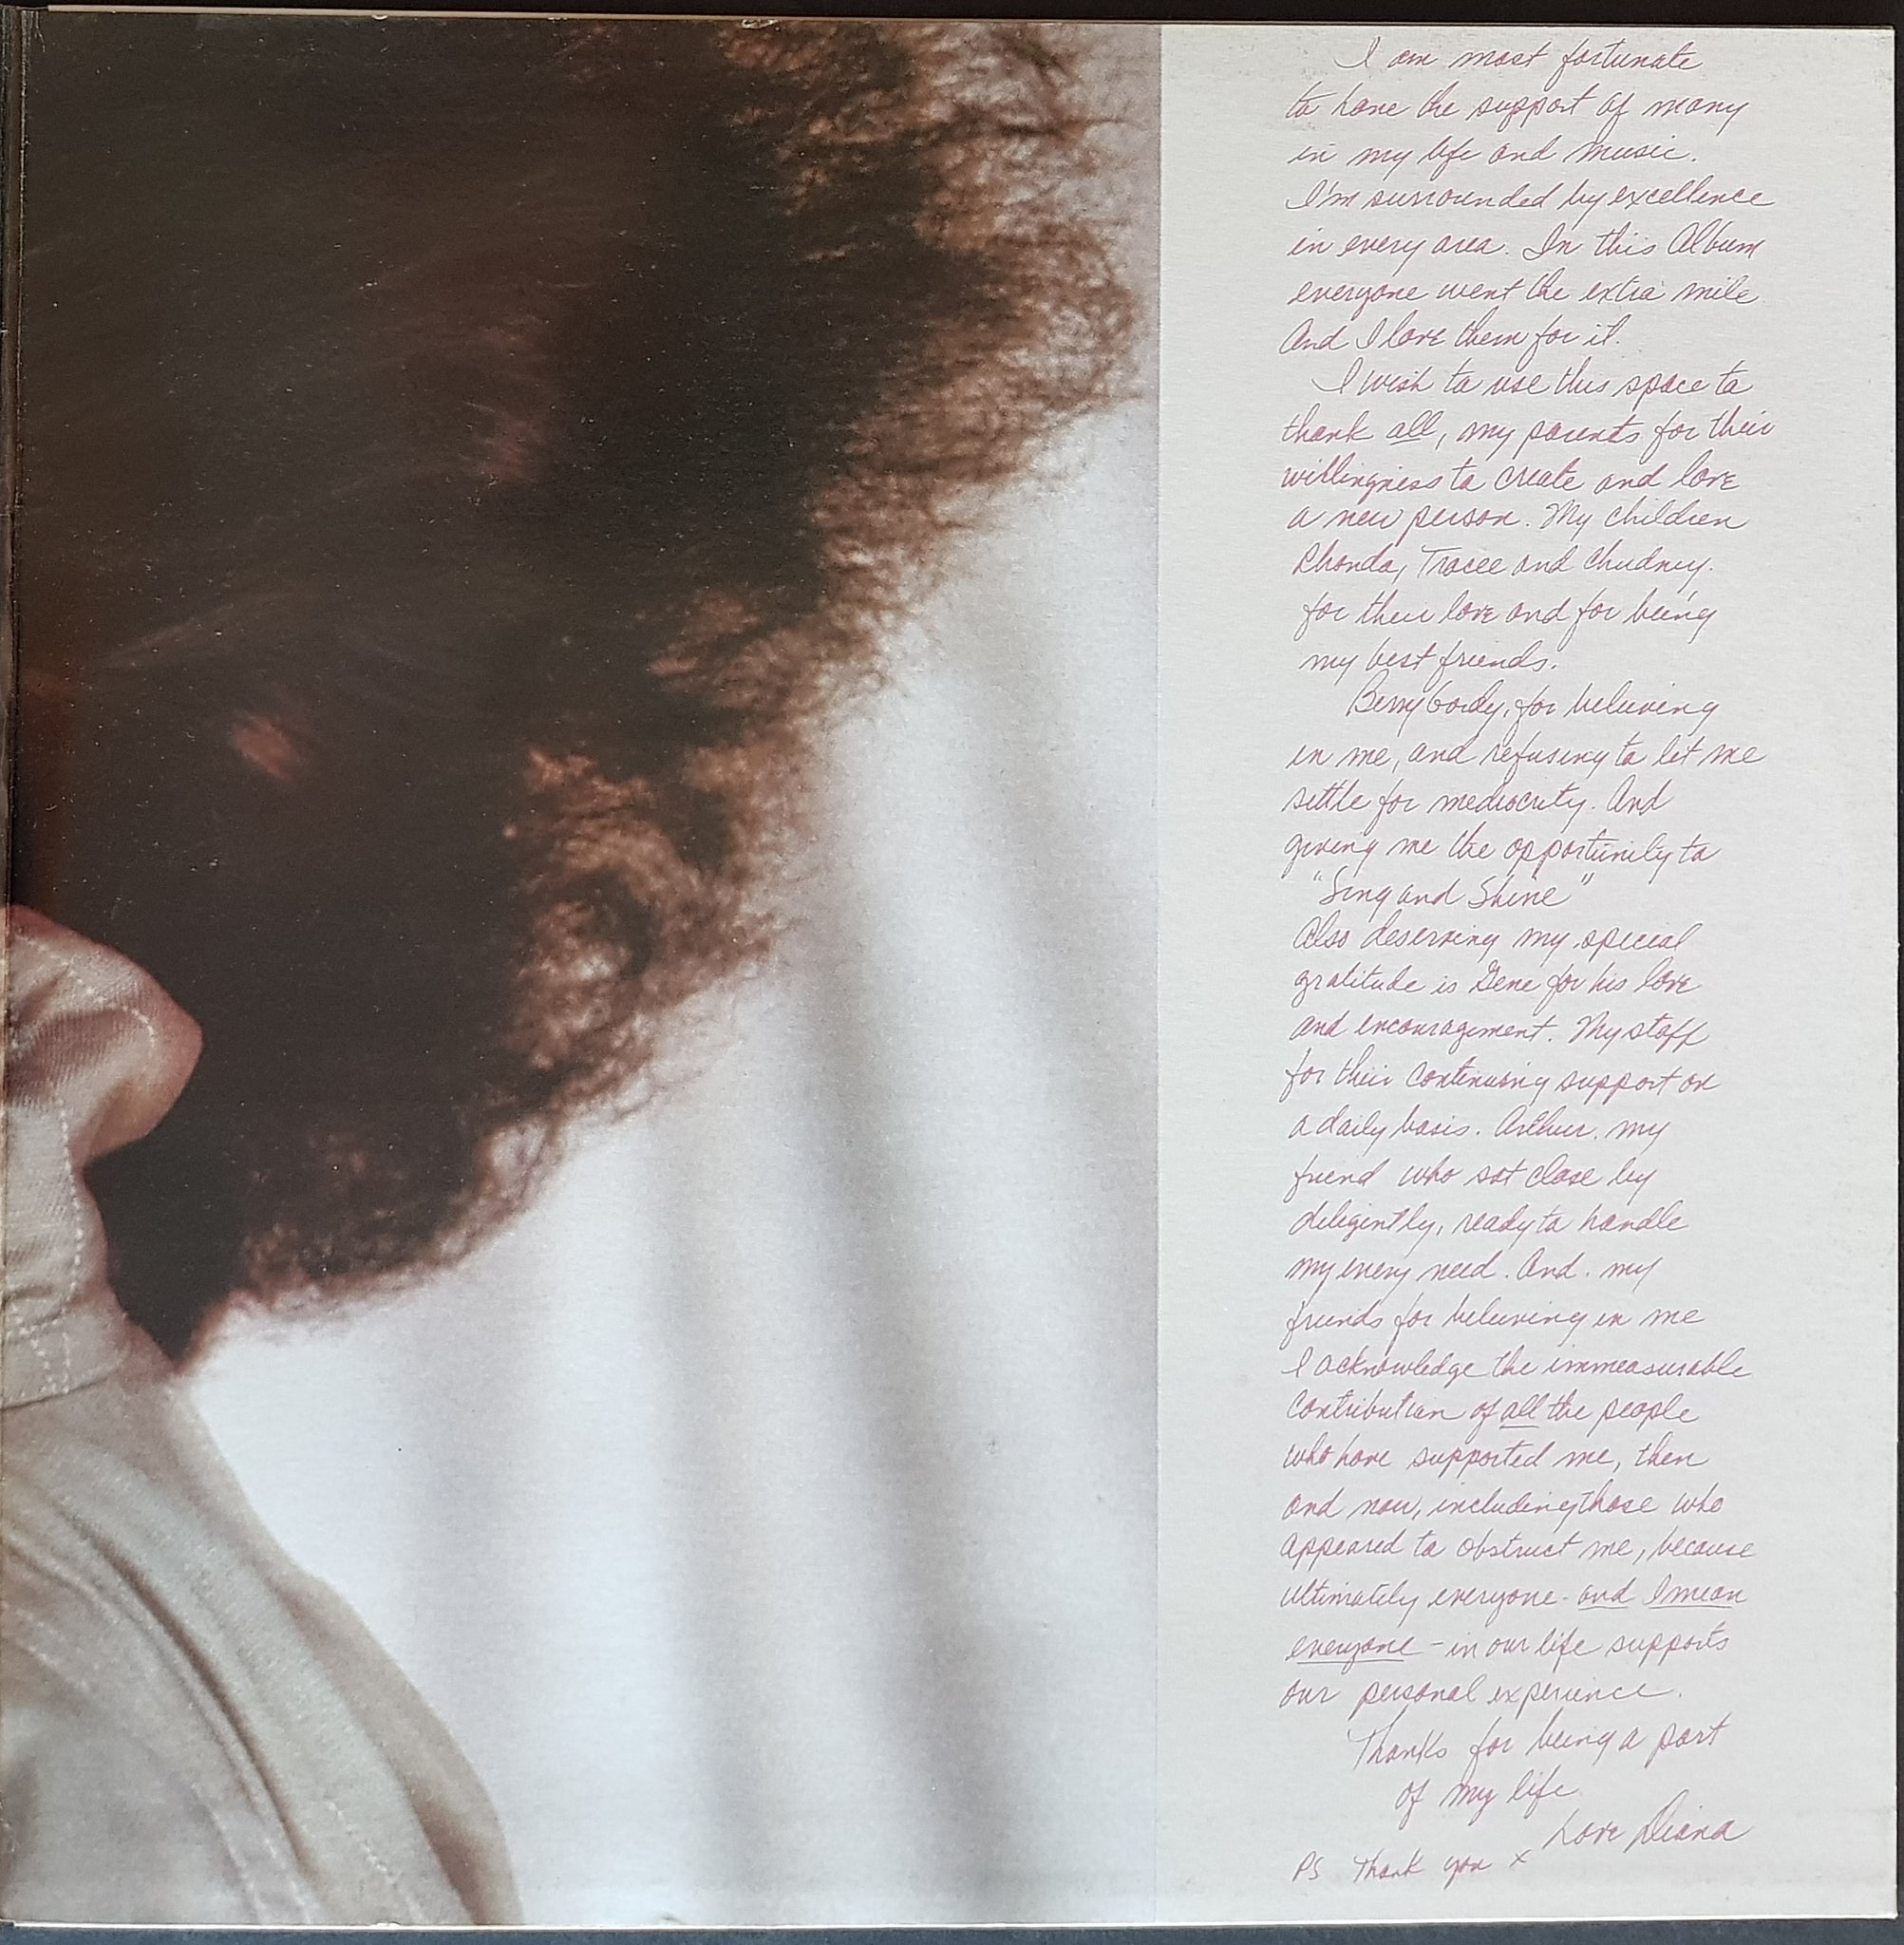 I am most fortunate
to have the support of many
in my life and music.
I'm surrounded by excellence
in every area. In this Album
everyone went the extra mile
And I love them for it.
I wish to use this space to
thank all, my parents for their
willingness to create and love
a new person. My children
Rhonda, Tracee and Chudney.
for their love and for being
my best friends.
Berry Gordy, for believing
in me, and refusing to let me
settle for mediocrity. And
giving me the opportunity to
"Sing and Shine"
Also deserving my special
gratitude is Gene for his love
and encouragement. My staff
for their continuing support on
a daily basis. Arthur. my
friend who sat close by
diligently, ready to handle
my every need. And. my
friends for believing in me
I acknowledge the immeasurable
contribution of all the people
who have supported me, then
and now, including those who
appeared to obstruct me, because
ultimately everyone - and I mean
everyone - in our life supports
our personal experience.
Thanks for being a part
of my life
Love Diana
PS Thank you x